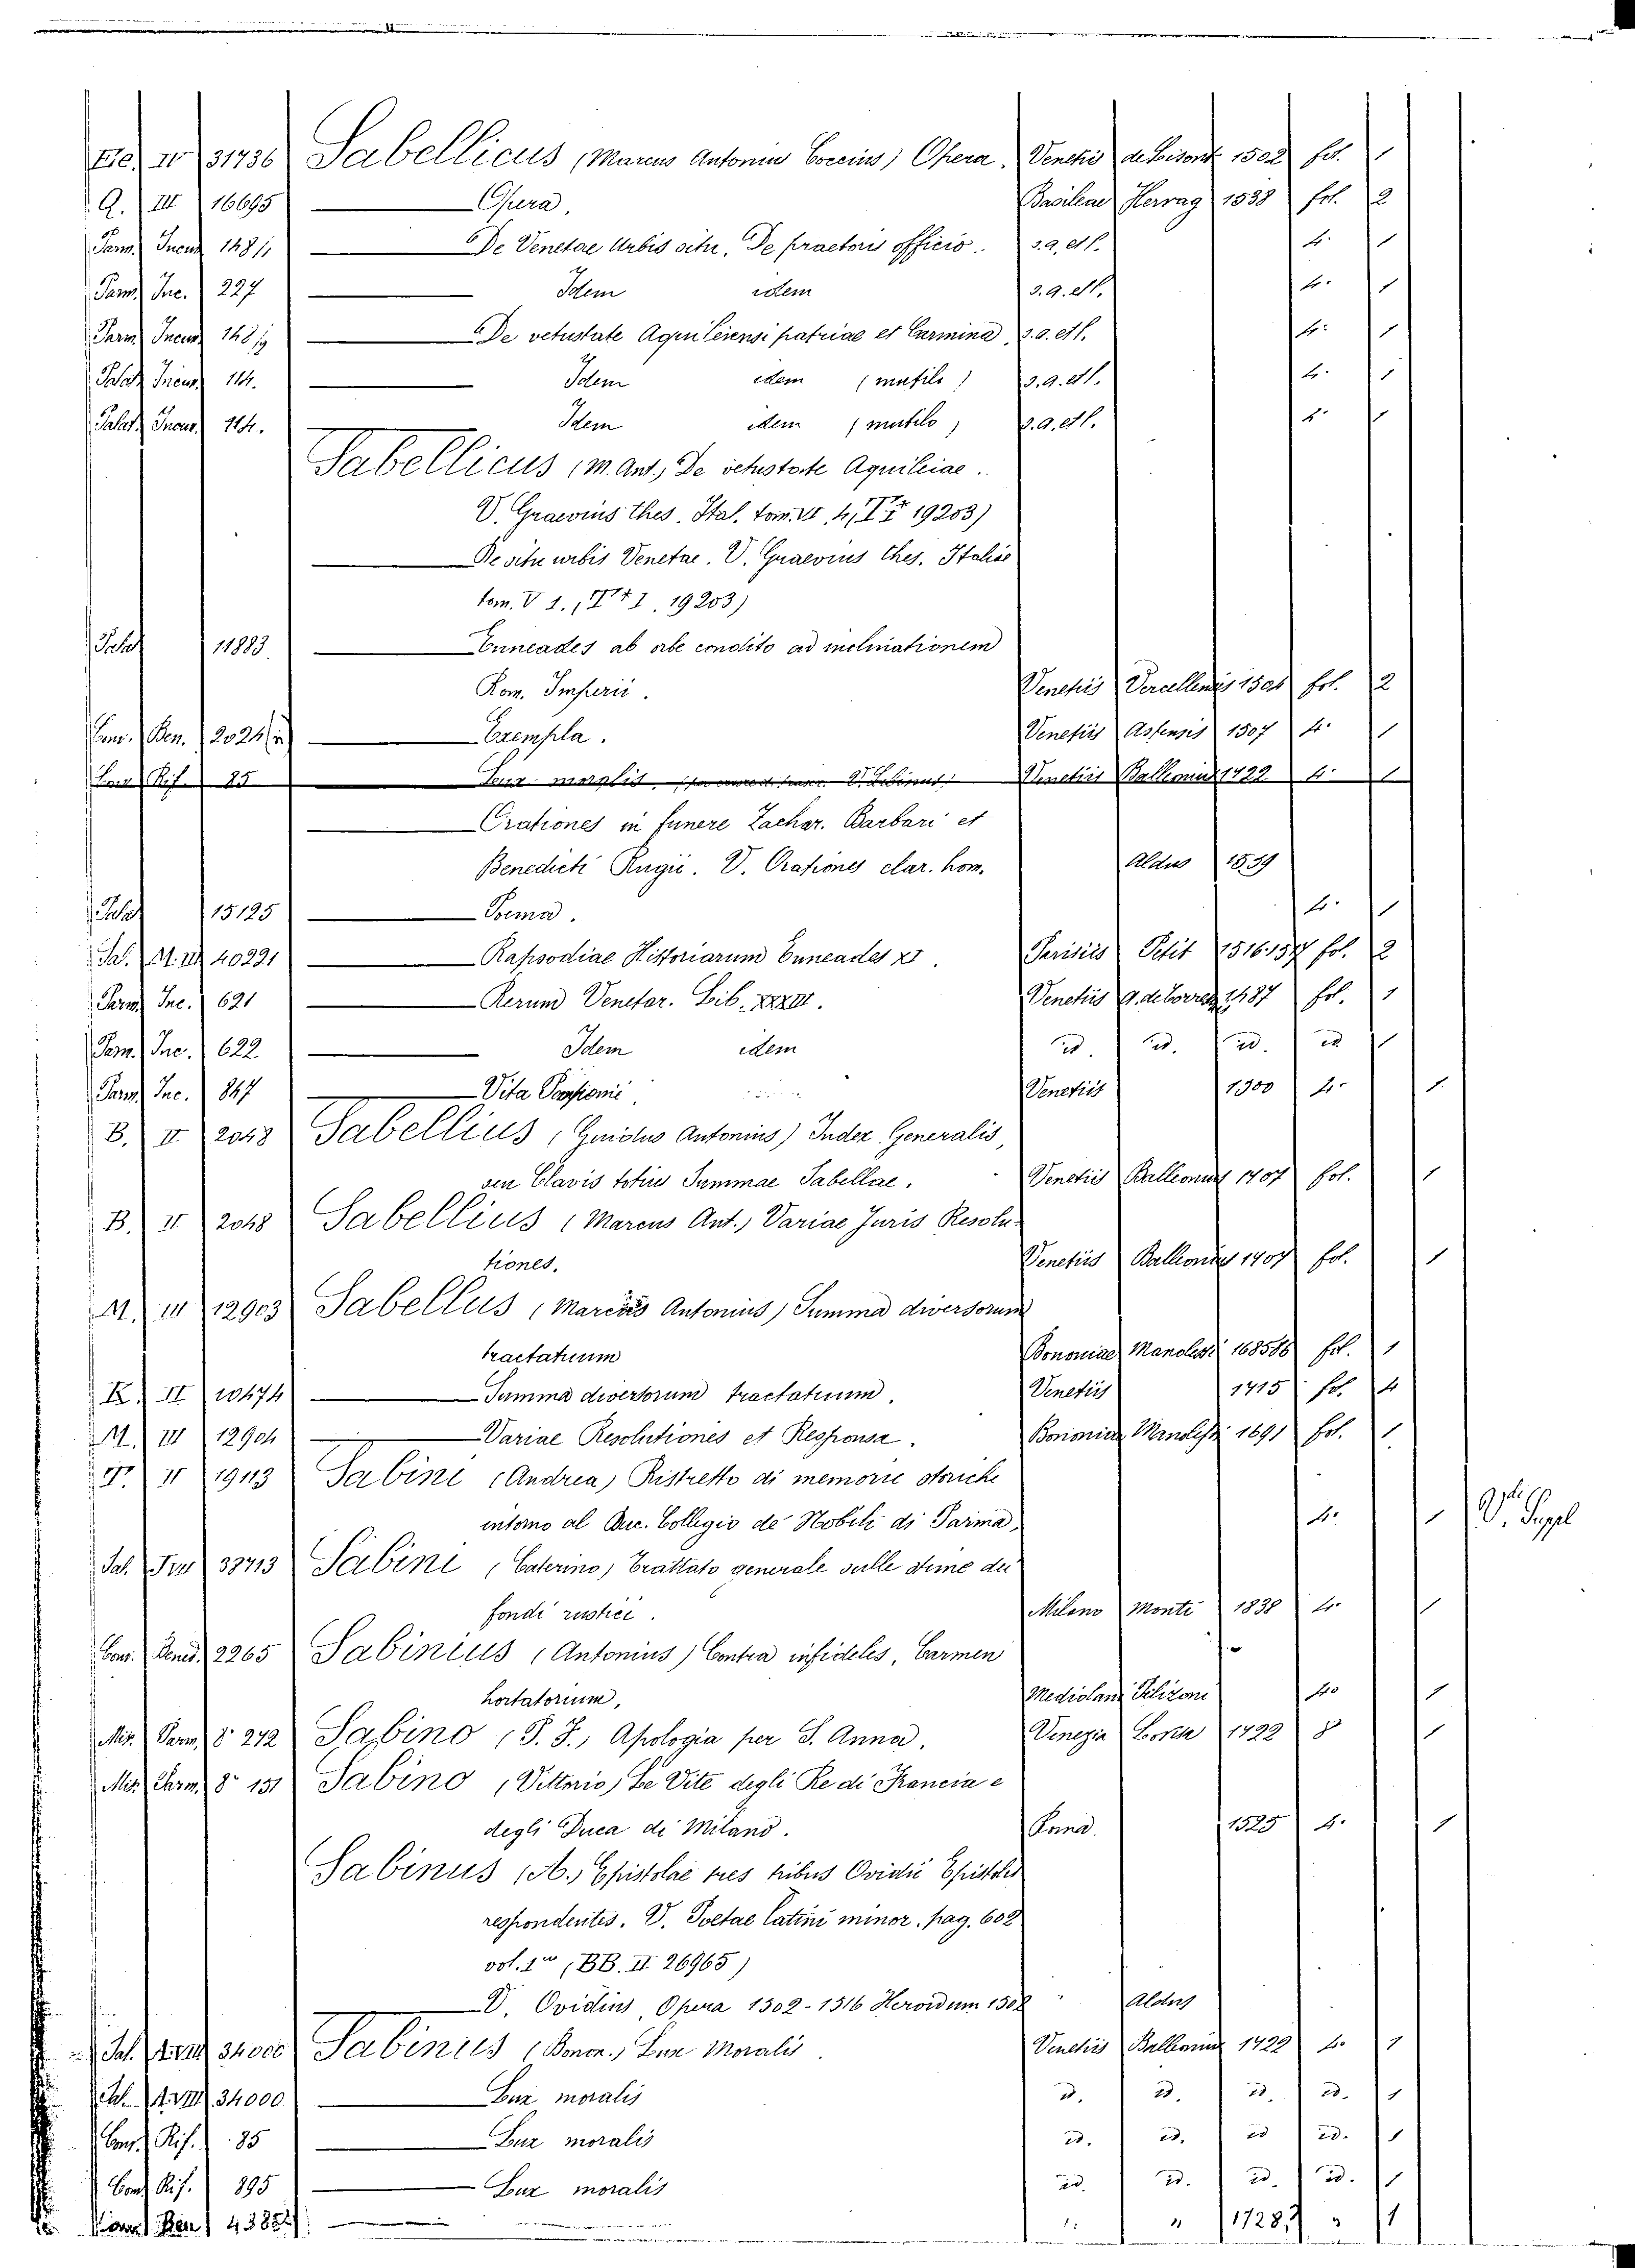 EE. IV 31736 Sabellicus (Marcus Antonin Coccius) Opera. Venetiis de Lisona 1502 fol. 1
Q. III 16695 Opera. Basileae Hervag 1538 fol. 2
Parm. Incun 148/1 De Venetae Urbis situ, De praetoris officio. s.a. et l. 4. 1
Parm. Inc. 227 Idem idem s.a. et l. 4. 1
Parm. Incun 148/2 De vetustate Aquileiensi patriae et Carmina s.a. et l. 4. 1
Palat Incun 114. Idem idem (mutilo) s.a. et l. 4. 1
Palat. Incun. 114. Idem idem (mutilo) s.a. et l. 4. 1
Sabellicus (M. Ant.) De vetustate Aquileiae.
V. Graevius thes. Ital. tom. VI, 4, (TT I 19203)
De situ urbis Venetae. V. Graevius thes. Italiae
tom. V 1., (TT I. 19203)
Palat 11883. Enneades ab orbe condito ad inclinationem
Rom. Imperii. Venetiis Vercellensis 1504 fol. 2
Conv. Ben. 2024 Exempla. Venetiis Astensis 1507 4. 1
Conv. Rif. 85 Lux moralis V. Sabinus Venetiis Balleonius 1722 4. 1
Orationes in funere Zachar. Barbari et
Benedicti Rugii. V. Orationes clar. hom. Aldus 1559
Palat 15125 Poema. 4. 1
Pal. 40221 Rapsodiae Historiarum Enneades XI. Parisiis Petit 1516.1517 fol. 2
Parm Inc. 621 Rerum Venetar. Lib. XXXIII. Venetiis A. de Torres 1487 fol. 1
Parm. Inc. 622 Idem idem id. id. id. id 1
Parm. Inc. 847 Vita Pomponii. Venetiis 1500 4. 1.
B. II 2048 Sabellius (Guidus Antonius) Index Generalis,
seu Clavis totius Summae Sabellae. Venetiis Balleonius 1707 fol. 1
B. II 2048 Sabellius (Marcus Ant.) Variae Juris Resolu-
tiones. Venetiis Balleonius 1707 fol. 1
M. III 12903 Sabellus (Marcus Antonius) Summa diversorum
tractatuum Bononiae Manolessi 168586 fol. 1
K. II 10474 Summa diversorum tractatuum. Venetiis 1715 fol. 4
M. III 12904 Variae Resolutiones et Responsa. Bononiae Manolessi 1691 fol. 1
II 19113 Sabini (Andrea) Ristretto di memorie storiche
intorno al Duc. Collegio de' Nobili di Parma, 4. 1 V. Suppl
Pal. 38713 Sabini (Caterino) Trattato generale sulle stime dei
fondi rustici. Milano Monti 1838 4. 1
Conv. Bened. 2265 Sabinius (Antonius) Contra infideles, Carmen
hortatorium, Mediolani 4o 1
Mis. Parm. 8° 272 Sabino (P. F.) Apologia per S. Anna. Venezia 1722 8° 1
Mis. Parm. 8° 131 Sabino (Vittorio) Le Vite degli Re di Francia e
degli Duca di Milano. Roma. 1525 4. 1
Sabinus (A.) Epistolae tres tribus Ovidii Epistolis
respondentes. V. Poetae Latini minor. pag. 602
vol. 1° (BB. II 26965)
V. Ovidius Opera 1502-1516 Heroidum 1502 Aldus
Pal. 34000 Sabinus (Bonav.) Lux Moralis Venetiis Balleonius 1722 4. 1
Pal. 34000 Lux moralis id. id. id. id. 1
Conv. Rif. 85 Lux moralis id. id. id id. 1
Conv. Rif. 895 Lux moralis id. id. id. id. 1
Conv. Ben 4388 " " 1728 " 1